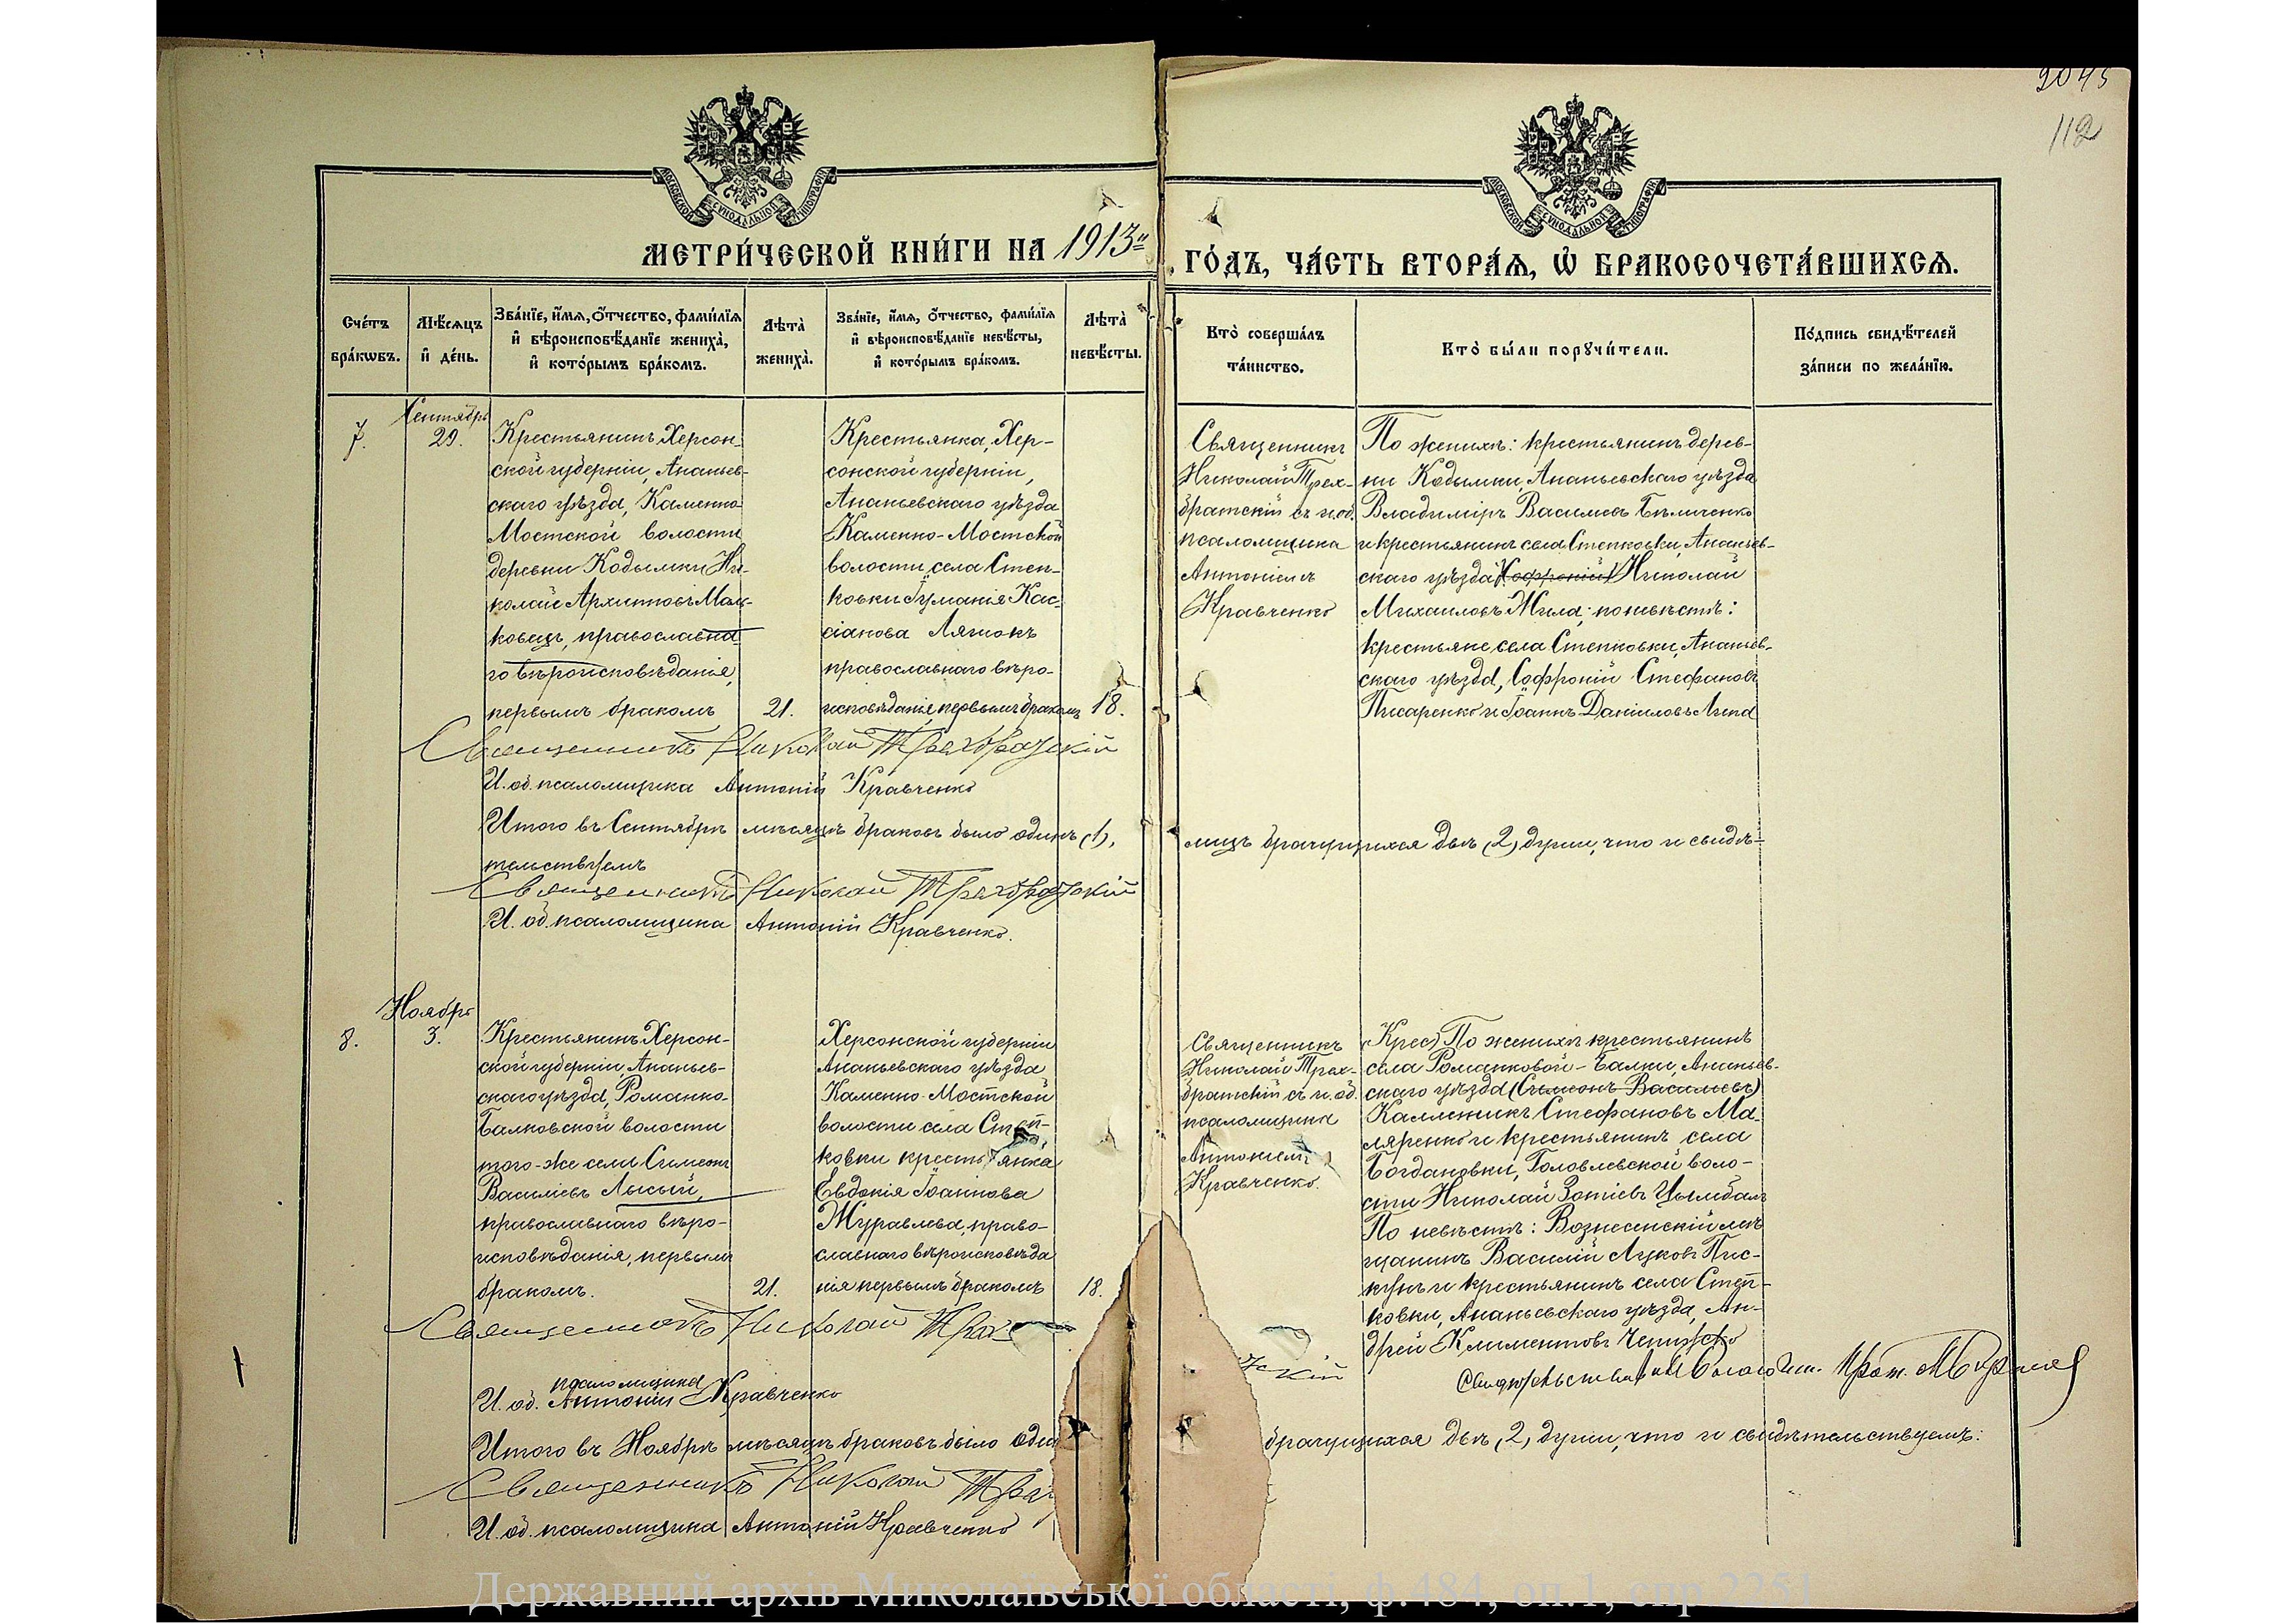 2045
112
МОСКОВСКОЙ СУНОДАЛЬНОЙ ТИПОГРАФІИ
МОСКОВСКОЙ СУНОДАЛЬНОЙ ТИПОГРАФІИ
МЕТРИ́ЧЕСКОЙ КНИ́ГИ НА 1913й
ГО́ДЪ, ЧА́СТЬ ВТОРА́Ѧ, Ѡ҆ БРАКОСОЧЕТА́ВШИХСѦ.
Сче́тъ бра́кѡвъ.
Мѣ́сѧцъ и҆ де́нь.
Зва́нїе, и҆́мѧ, ѻ҆́тчество, фами́лїѧ и҆ вѣроисповѣ́данїе жениха̀, и҆ кото́рымъ бра́комъ.
Лѣта̀ жениха̀.
Зва́нїе, и҆́мѧ, ѻ҆́тчество, фами́лїѧ и҆ вѣроисповѣ́данїе невѣ́сты, и҆ кото́рымъ бра́комъ.
Лѣта̀ невѣ́сты.
Кто̀ соверша́лъ та́инство.
Кто̀ бы́ли порꙋчи́тели.
По́дпись свидѣ́телей за́писи по жела́нїю.
7.
Сентябрь
29.
Крестьянинъ Херсон-
ской губерніи, Ананьев-
скаго уѣзда, Каменно-
Мостской волости
деревни Кодымки Ни-
колай Архиповъ Маль-
ковецъ, православна-
го вѣроисповѣданія,
первымъ бракомъ
21.
Крестьянка, Хер-
сонской губерніи,
Ананьевскаго уѣзда
Каменно-Мостской
волости, села Степ-
ковки Іуманія Кас-
сіанова Лягнокъ
православнаго вѣро-
исповѣданія, первымъ бракомъ
18.
Священникъ
Николай Трех-
братскій съ и. об.
псаломщика
Антоніемъ
Кравченко
По женихѣ: крестьянинъ дерев-
ни Кодымки, Ананьевскаго уѣзда
Владиміръ Васильевъ Бѣличенко
и крестьянинъ села Степковки, Ананьев-
скаго уѣзда (Софроній) Николай
Михаиловъ Жила; по невѣстѣ:
крестьяне села Степковки, Ананьев-
скаго уѣзда, Софроній Стефановъ
Писаренко и Іоаннъ Даніиловъ Липа
Священникъ Николай Трехбратскій
И. об. псаломщика Антоній Кравченко
Итого въ Сентябрѣ мѣсяцѣ браковъ было одинъ (1), лицъ брачущихся двѣ (2) души, что и свидѣ-
тельствуемъ
Священникъ Николай Трехбратскій
И. об. псаломщика Антоній Кравченко.
Ноябрь
8.
3.
Крестьянинъ Херсон-
ской губерніи, Ананьев-
скаго уѣзда, Романко-
Балковской волости
того-же села Симеонъ
Василіевъ Лысый,
православнаго вѣро-
исповѣданія, первымъ
бракомъ.
21.
Херсонской губерніи
Ананьевскаго уѣзда
Каменно-Мостской
волости села Степ-
ковки крестьянка
Евдокія Іоаннова
Журавлева, право-
славнаго вѣроисповѣда
нія первымъ бракомъ
18.
Священникъ
Николай Трех-
братскій съ и. об.
псаломщика
Антоніемъ
Кравченко.
(Крес) По женихѣ крестьянинъ
села Романковой-Балки, Ананьев-
скаго уѣзда (Симеонъ Василіевъ)
Каленикъ Стефановъ Ма-
ляренко и крестьянинъ села
Богдановки, Головлевской воло-
сти Николай Зотіевъ Цымбалъ
По невѣстѣ: Вознесенскій мѣ-
щанинъ Василій Луковъ Пис-
кунъ и крестьянинъ села Степ-
ковки, Ананьевскаго уѣзда, Ан-
дрей Климентовъ
Священникъ Николай Трех
скій
И. об. псаломщика Антоній Кравченко
Итого въ Ноябрѣ мѣсяцѣ браковъ было один
брачущихся двѣ (2) души, что и свидѣтельствуемъ:
Священникъ Николай Трех
И. об. псаломщика Антоній Кравченко
Державний архів Миколаївської області, ф.484, оп.1, спр.2251